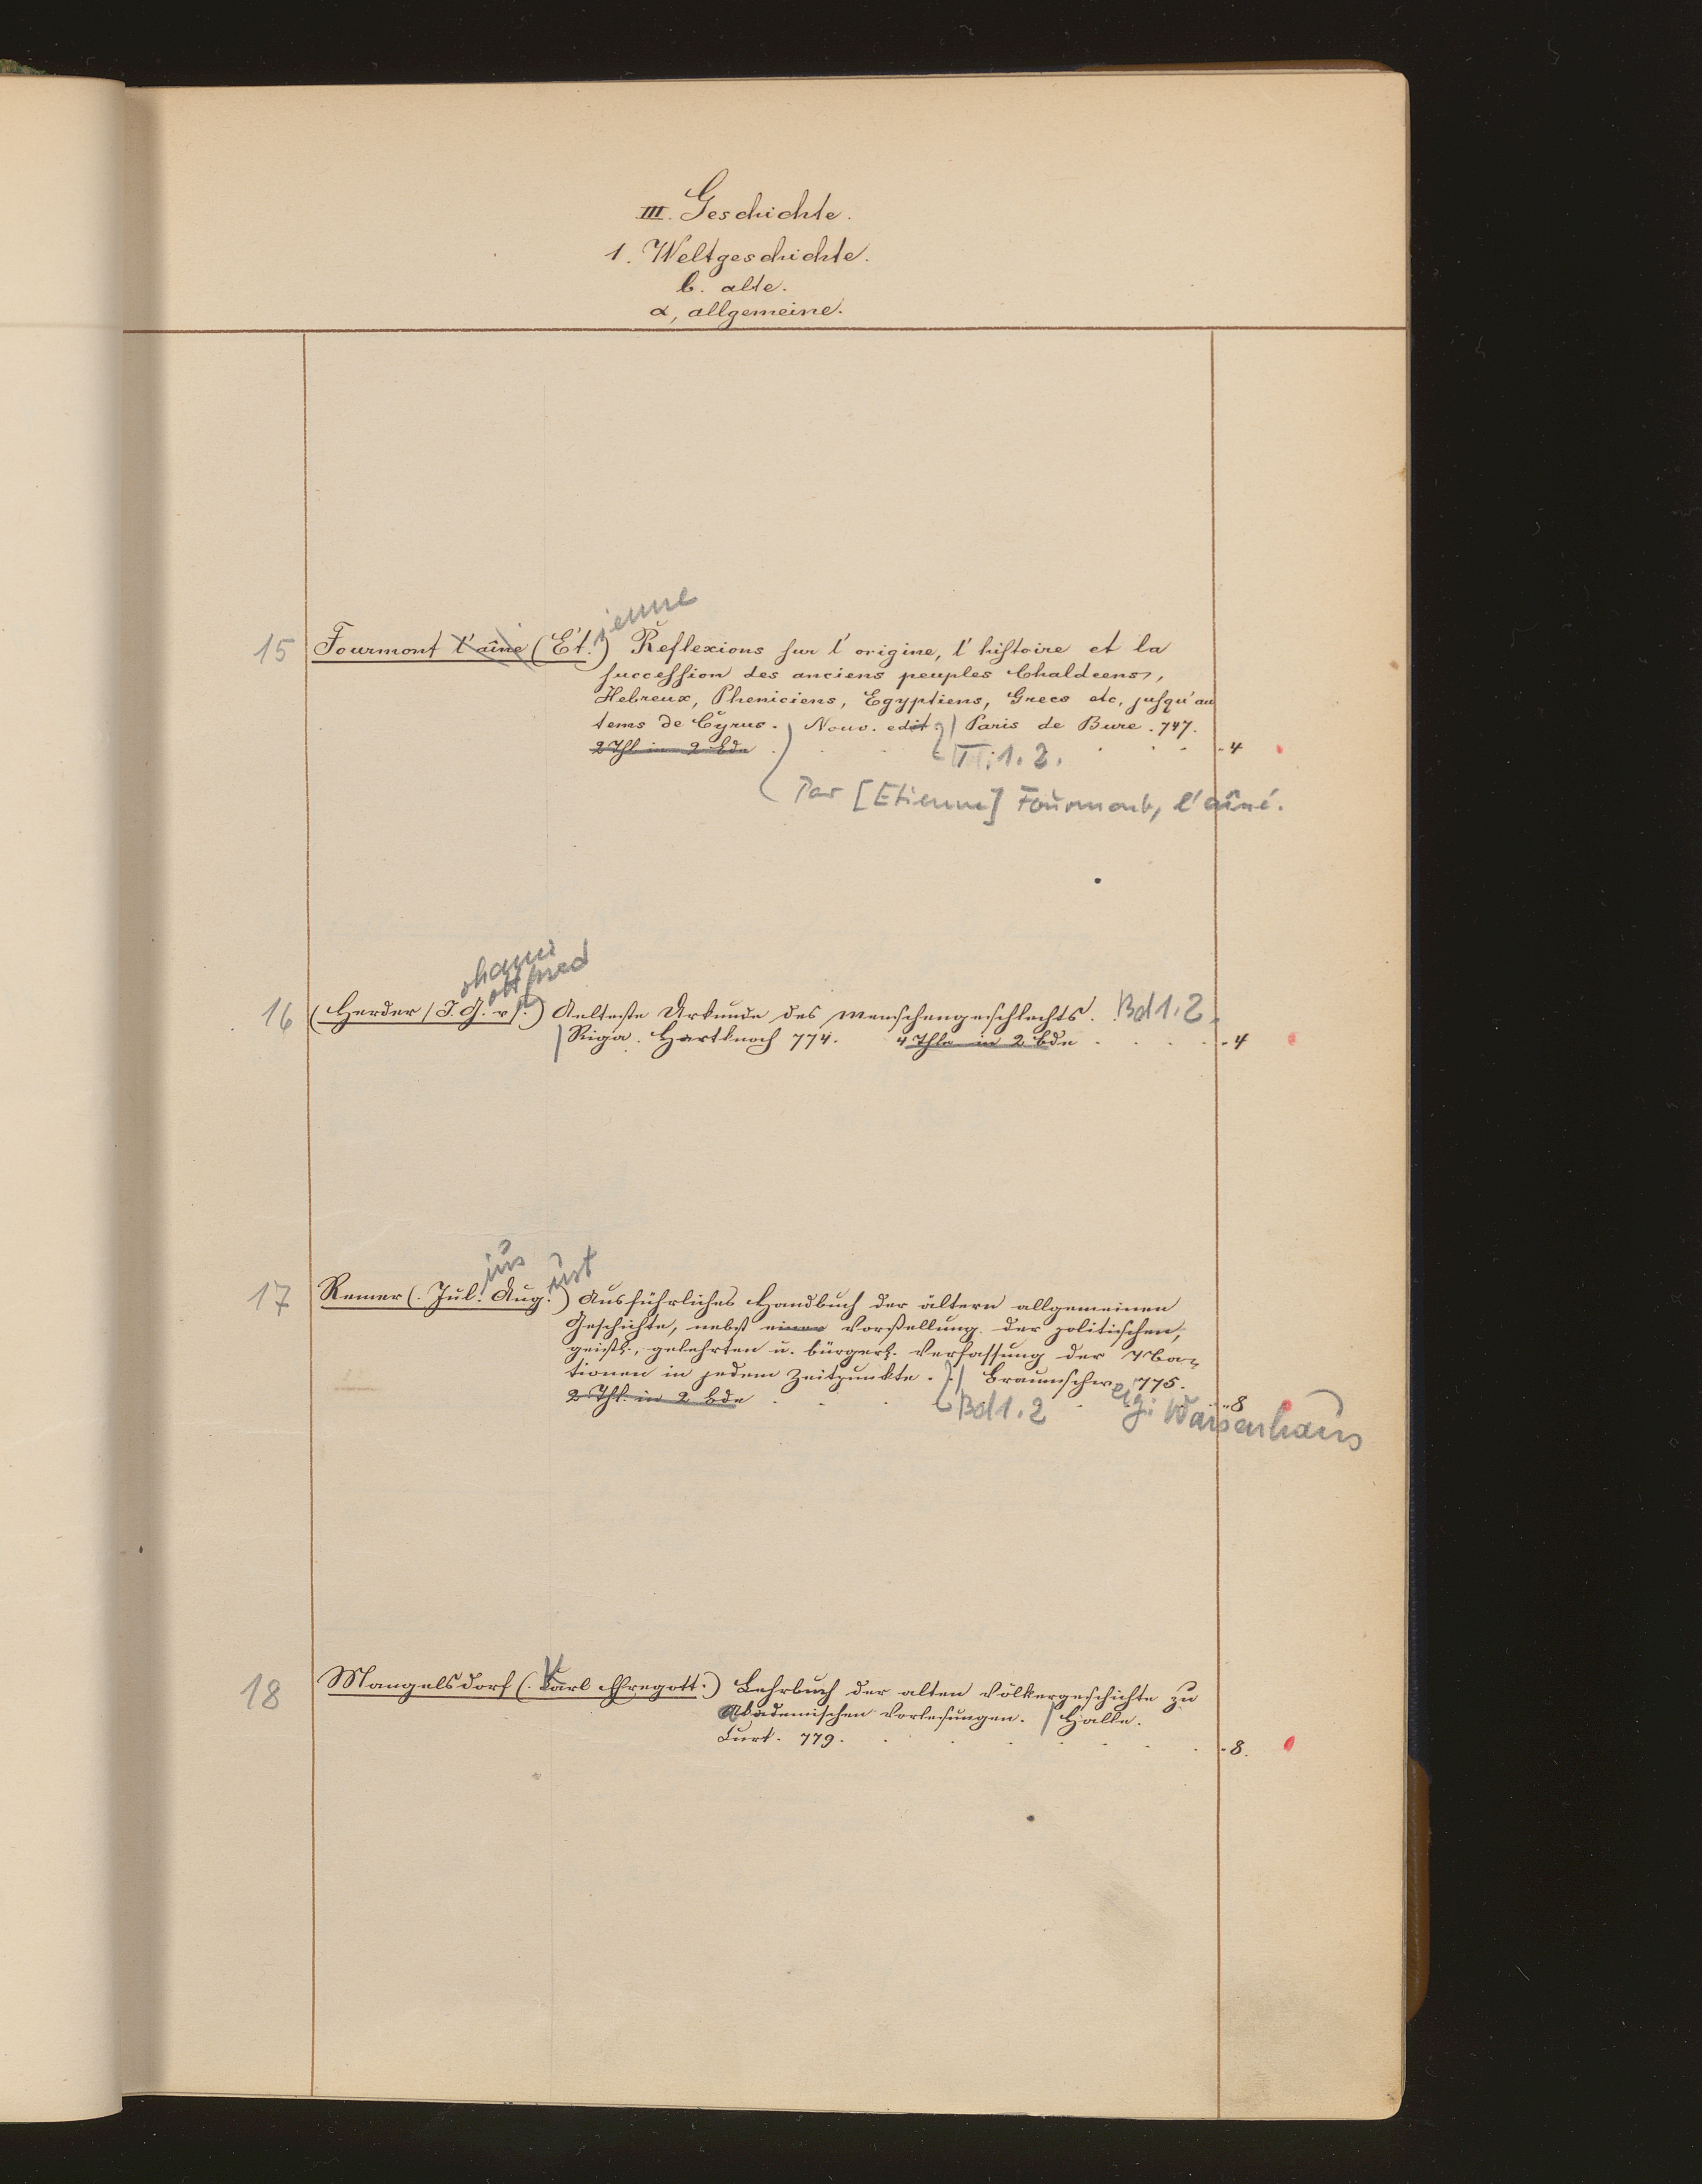 III. Geschichte.
1. Weltgeschichte.
b. alte.
α, allgemeine.
ienne
15 Fourmont l'aîne (Et.) Reflexions sur l'origine, l'histoire et la
succession des anciens peuples Chaldeens,
Hebreux, Pheniciens, Egyptiens, Grecs etc, jusqu'au
tems de Cyrus. Nouv. edit. Paris de Bure. 747.
2 Thl. in 2 Bde . . . . 4
T. 1. 2.
Par [Etienne] Fourmont, l'aîné.
ohann
ottfried
16 (Herder / J. G. v.) Aelteste Urkunde des Menschengeschlechts. Bd 1. 2.
Riga. Hartknoch 774. 4 Thle in 2 Bde . . . . 4
ius ust
17 Remer (Jul. Aug.) Ausführliches Handbuch der ältern allgemeinen
Geschichte, nebst einer Vorstellung der politischen,
geistl., gelehrten u. bürgerl. Verfassung der Na-
tionen in jedem Zeitpunkte. Braunschw. 775.
2 Thl. in 2 Bde . . . . 8
Bd 1. 2 eig: Waisenhaus
K
18 Mangelsdorf (Carl Ehregott.) Lehrbuch der alten Völkergeschichte zu
Akademischen Vorlesungen. Halle.
Curt. 779. . . . . . 8.